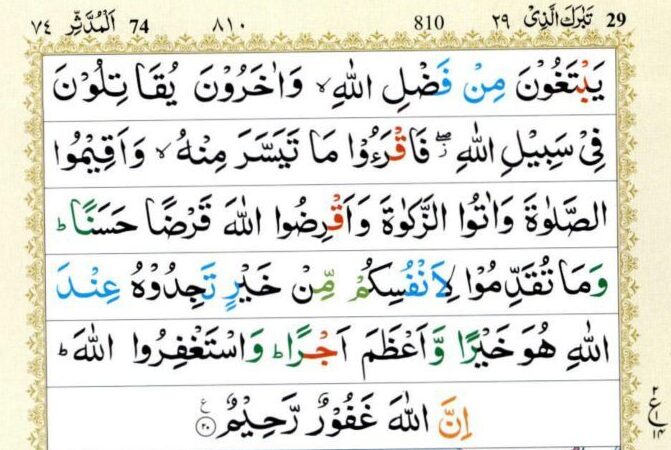 29 تَبٰرَكَ الَّذِىْ ٢٩ 810 ٨١٠ 74 اَلْمُدَّثِّر ٧٤
يَبْتَغُوْنَ مِنْ فَضْلِ اللّٰهِ ۙ وَاٰخَرُوْنَ يُقَاتِلُوْنَ
فِىْ سَبِيْلِ اللّٰهِ ۖ فَاقْرَءُوْا مَا تَيَسَّرَ مِنْهُ ۙ وَاَقِيْمُوا
الصَّلٰوةَ وَاٰتُوا الزَّكٰوةَ وَاَقْرِضُوا اللّٰهَ قَرْضًا حَسَنًا ؕ
وَمَا تُقَدِّمُوْا لِاَنْفُسِكُمْ مِّنْ خَيْرٍ تَجِدُوْهُ عِنْدَ
اللّٰهِ هُوَ خَيْرًا وَّاَعْظَمَ اَجْرًا ؕ وَاسْتَغْفِرُوا اللّٰهَ ؕ
اِنَّ اللّٰهَ غَفُوْرٌ رَّحِيْمٌ ۧ ﴿٢٠﴾
٢
ع
١
١٤